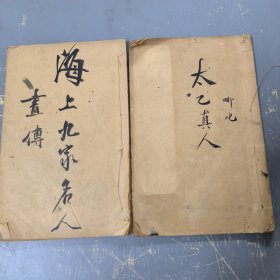 海上九家名人
畫傳
太乙真人
哪吒